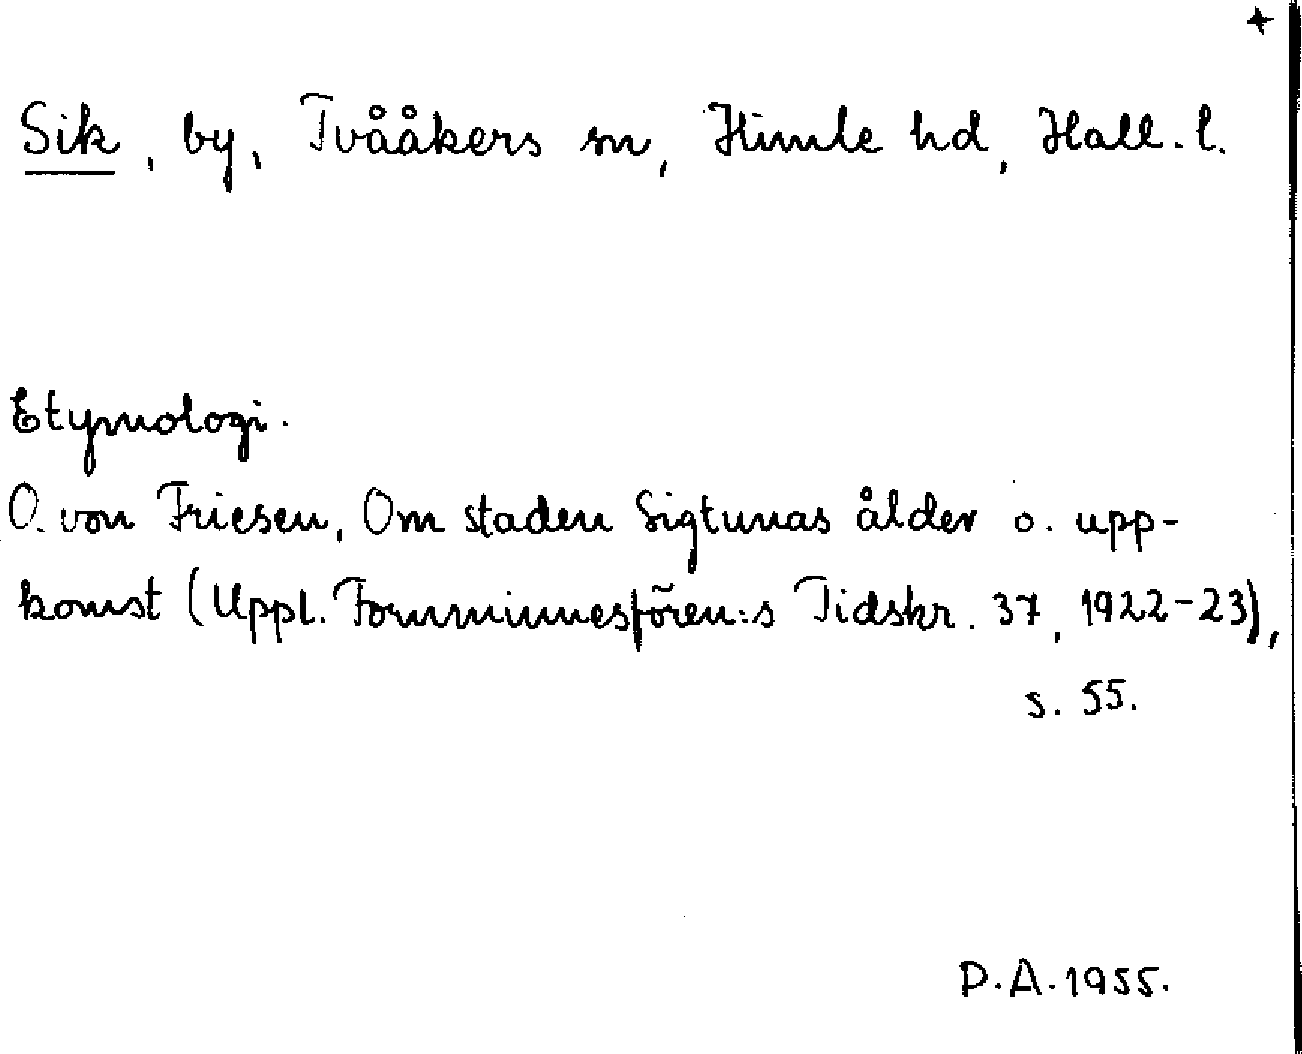 +
Sik, by, Tvååkers sn, Himle hd, Hall. l.
Etymologi.
O. von Friesen, Om staden Sigtunas ålder o. upp-
komst (Uppl. Fornminnesfören:s Tidskr. 37, 1922-23),
s. 55.
P.A. 1955.